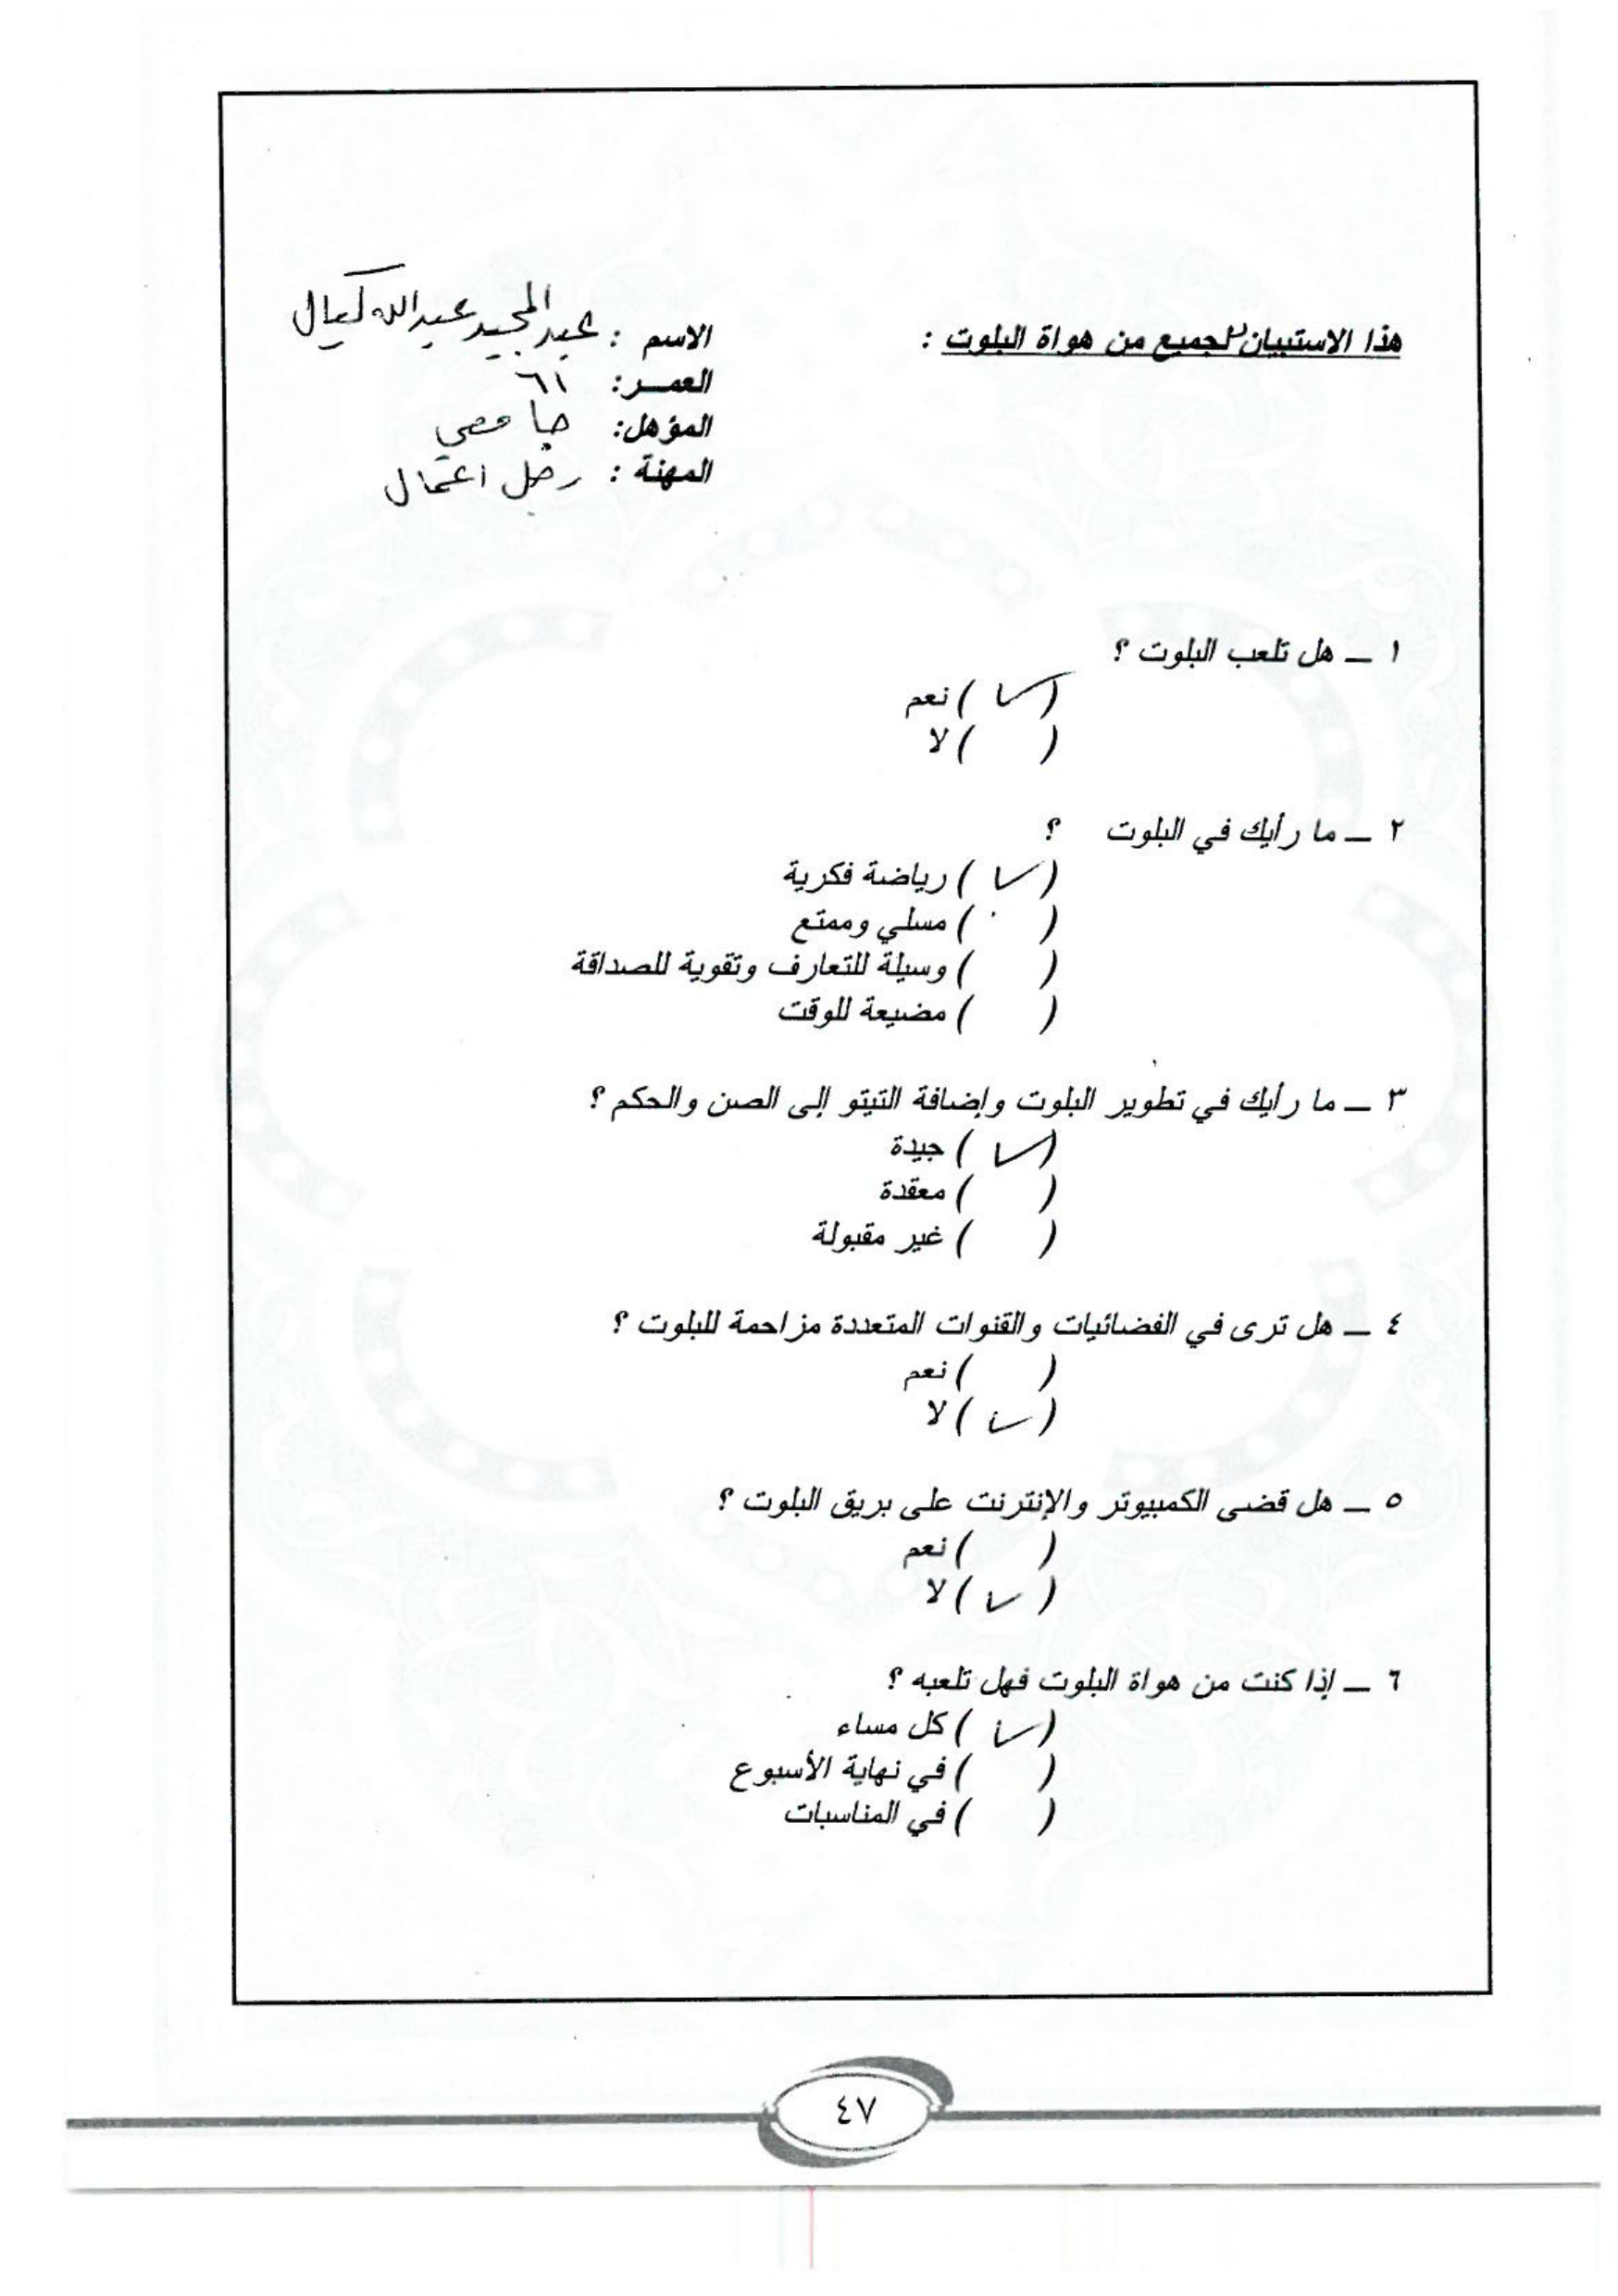 هذا الاستبيان لجميع من هواة البلوت :
الاسم : عبد المجيد عبدالله كيال
العمـر: ٦١
المؤهل: جامعي
المهنة : رجل اعمال
١ ــ هل تلعب البلوت ؟
( ✓ ) نعم
( ) لا
٢ ــ ما رأيك في البلوت ؟
( ✓ ) رياضة فكرية
( ) مسلي وممتع
( ) وسيلة للتعارف وتقوية للصداقة
( ) مضيعة للوقت
٣ ــ ما رأيك في تطوير البلوت وإضافة التيتو إلى الصن والحكم ؟
( ✓ ) جيدة
( ) معقدة
( ) غير مقبولة
٤ ــ هل ترى في الفضائيات والقنوات المتعددة مزاحمة للبلوت ؟
( ) نعم
( ✓ ) لا
٥ ــ هل قضى الكمبيوتر والإنترنت على بريق البلوت ؟
( ) نعم
( ✓ ) لا
٦ ــ إذا كنت من هواة البلوت فهل تلعبه ؟
( ✓ ) كل مساء
( ) في نهاية الأسبوع
( ) في المناسبات
٤٧